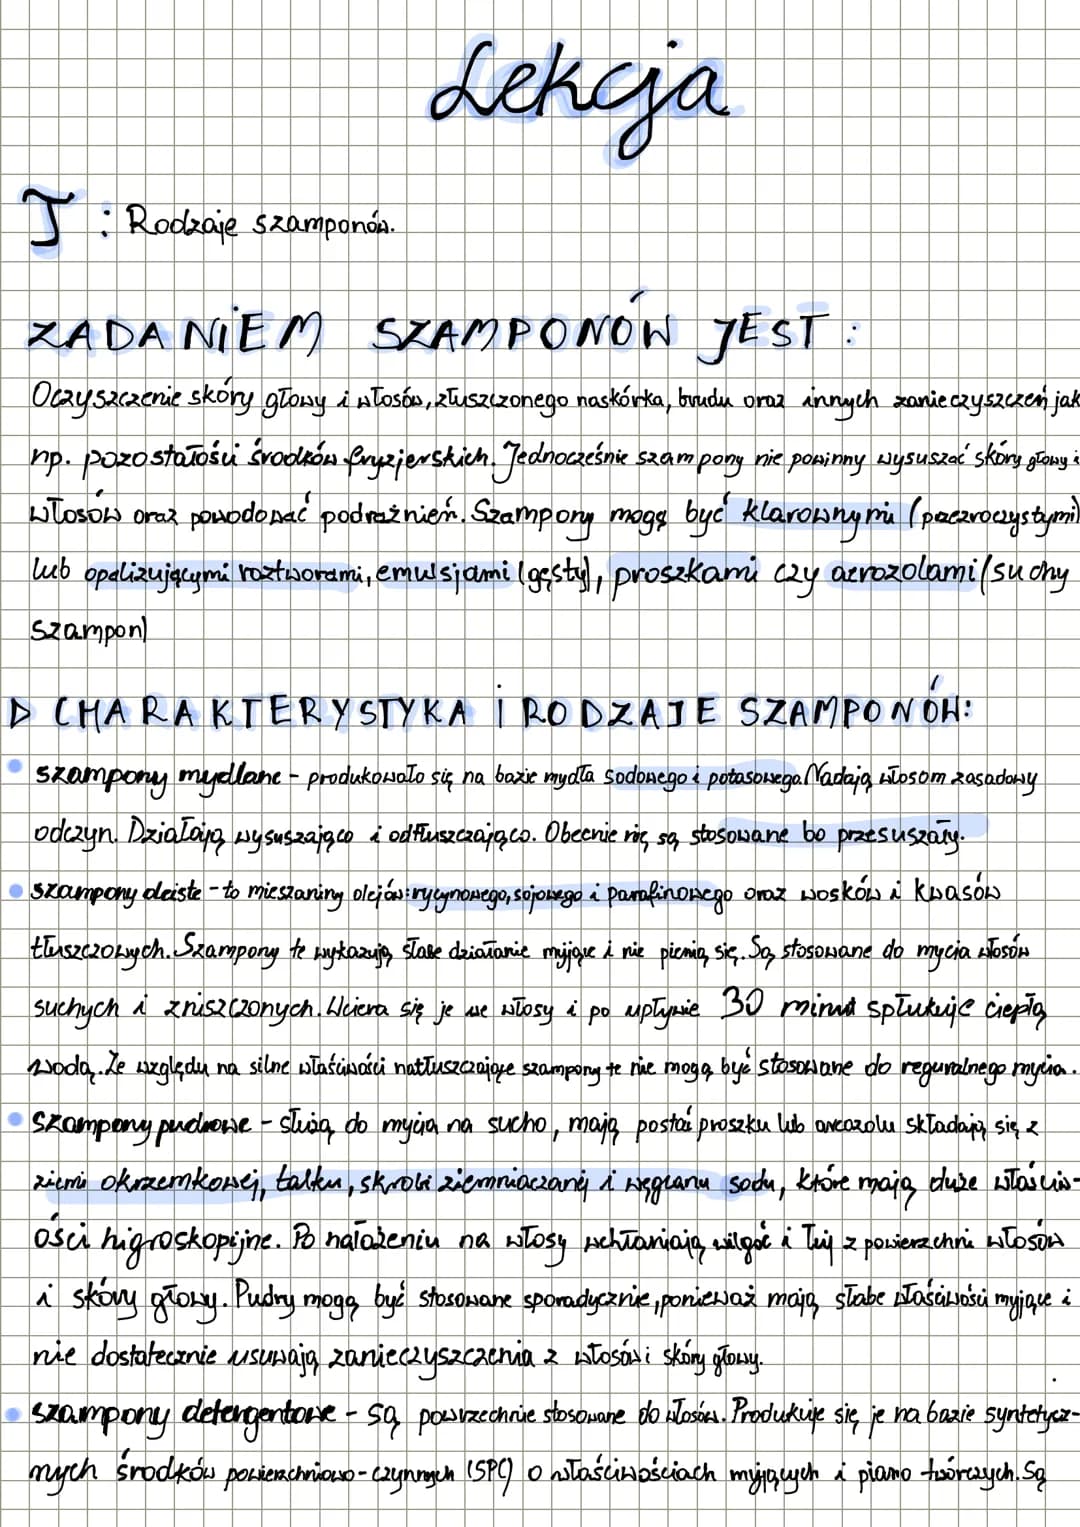 Lekcja
T: Rodzaje szamponów.
ZADANIEM SZAMPONÓW JEST:
Oczyszczenie skóry głowy i włosów, złuszczonego naskórka, brudu oraz innych zanieczyszczeń jak
np. pozostałości środków fryzjerskich. Jednocześnie szampony nie powinny wysuszać skóry głowy i
włosów oraz powodować podrażnień. Szampony mogą być klarownymi (przezroczystymi)
lub opalizującymi roztworami, emulsjami (gęsty), proszkami czy aerozolami (suchy
szampon)
▷ CHARAKTERYSTYKA i RODZAJE SZAMPONÓW:
• szampony mydlane - produkowało się na bazie mydła sodowego i potasowego. Nadają włosom zasadowy
odczyn. Działają wysuszająco i odtłuszczająco. Obecnie nie są stosowane bo przesuszały.
• szampony oleiste - to mieszaniny olejów: rycynowego, sojowego i parafinowego oraz wosków i kwasów
tłuszczowych. Szampony te wykazują słabe działanie myjące i nie pienią się. Są stosowane do mycia włosów
suchych i zniszczonych. Wciera się je we włosy i po upływie 30 minut spłukuje ciepłą
wodą. Ze względu na silne właściwości natłuszczające szampony te nie mogą być stosowane do reguralnego mycia.
• szampony pudrowe - służą do mycia na sucho, mają postać proszku lub składają się z
ziemi okrzemkowej, talku, skrobi ziemniaczanej i węglanu sodu, które mają duże właściw-
ości higroskopijne. Po nałożeniu na włosy wchłaniają wilgoć i łój z powierzchni włosów
i skóry głowy. Pudry mogą być stosowane sporadycznie, ponieważ mają słabe właściwości myjące i
nie dostatecznie usuwają zanieczyszczenia z włosów i skóry głowy.
• szampony detergentowe - są powrzechnie stosowane do włosów. Produkuje się je na bazie syntetycz-
nych środków powierzchniowo-czynnych (SPC) o właściwościach myjących i piano twórczych. Są